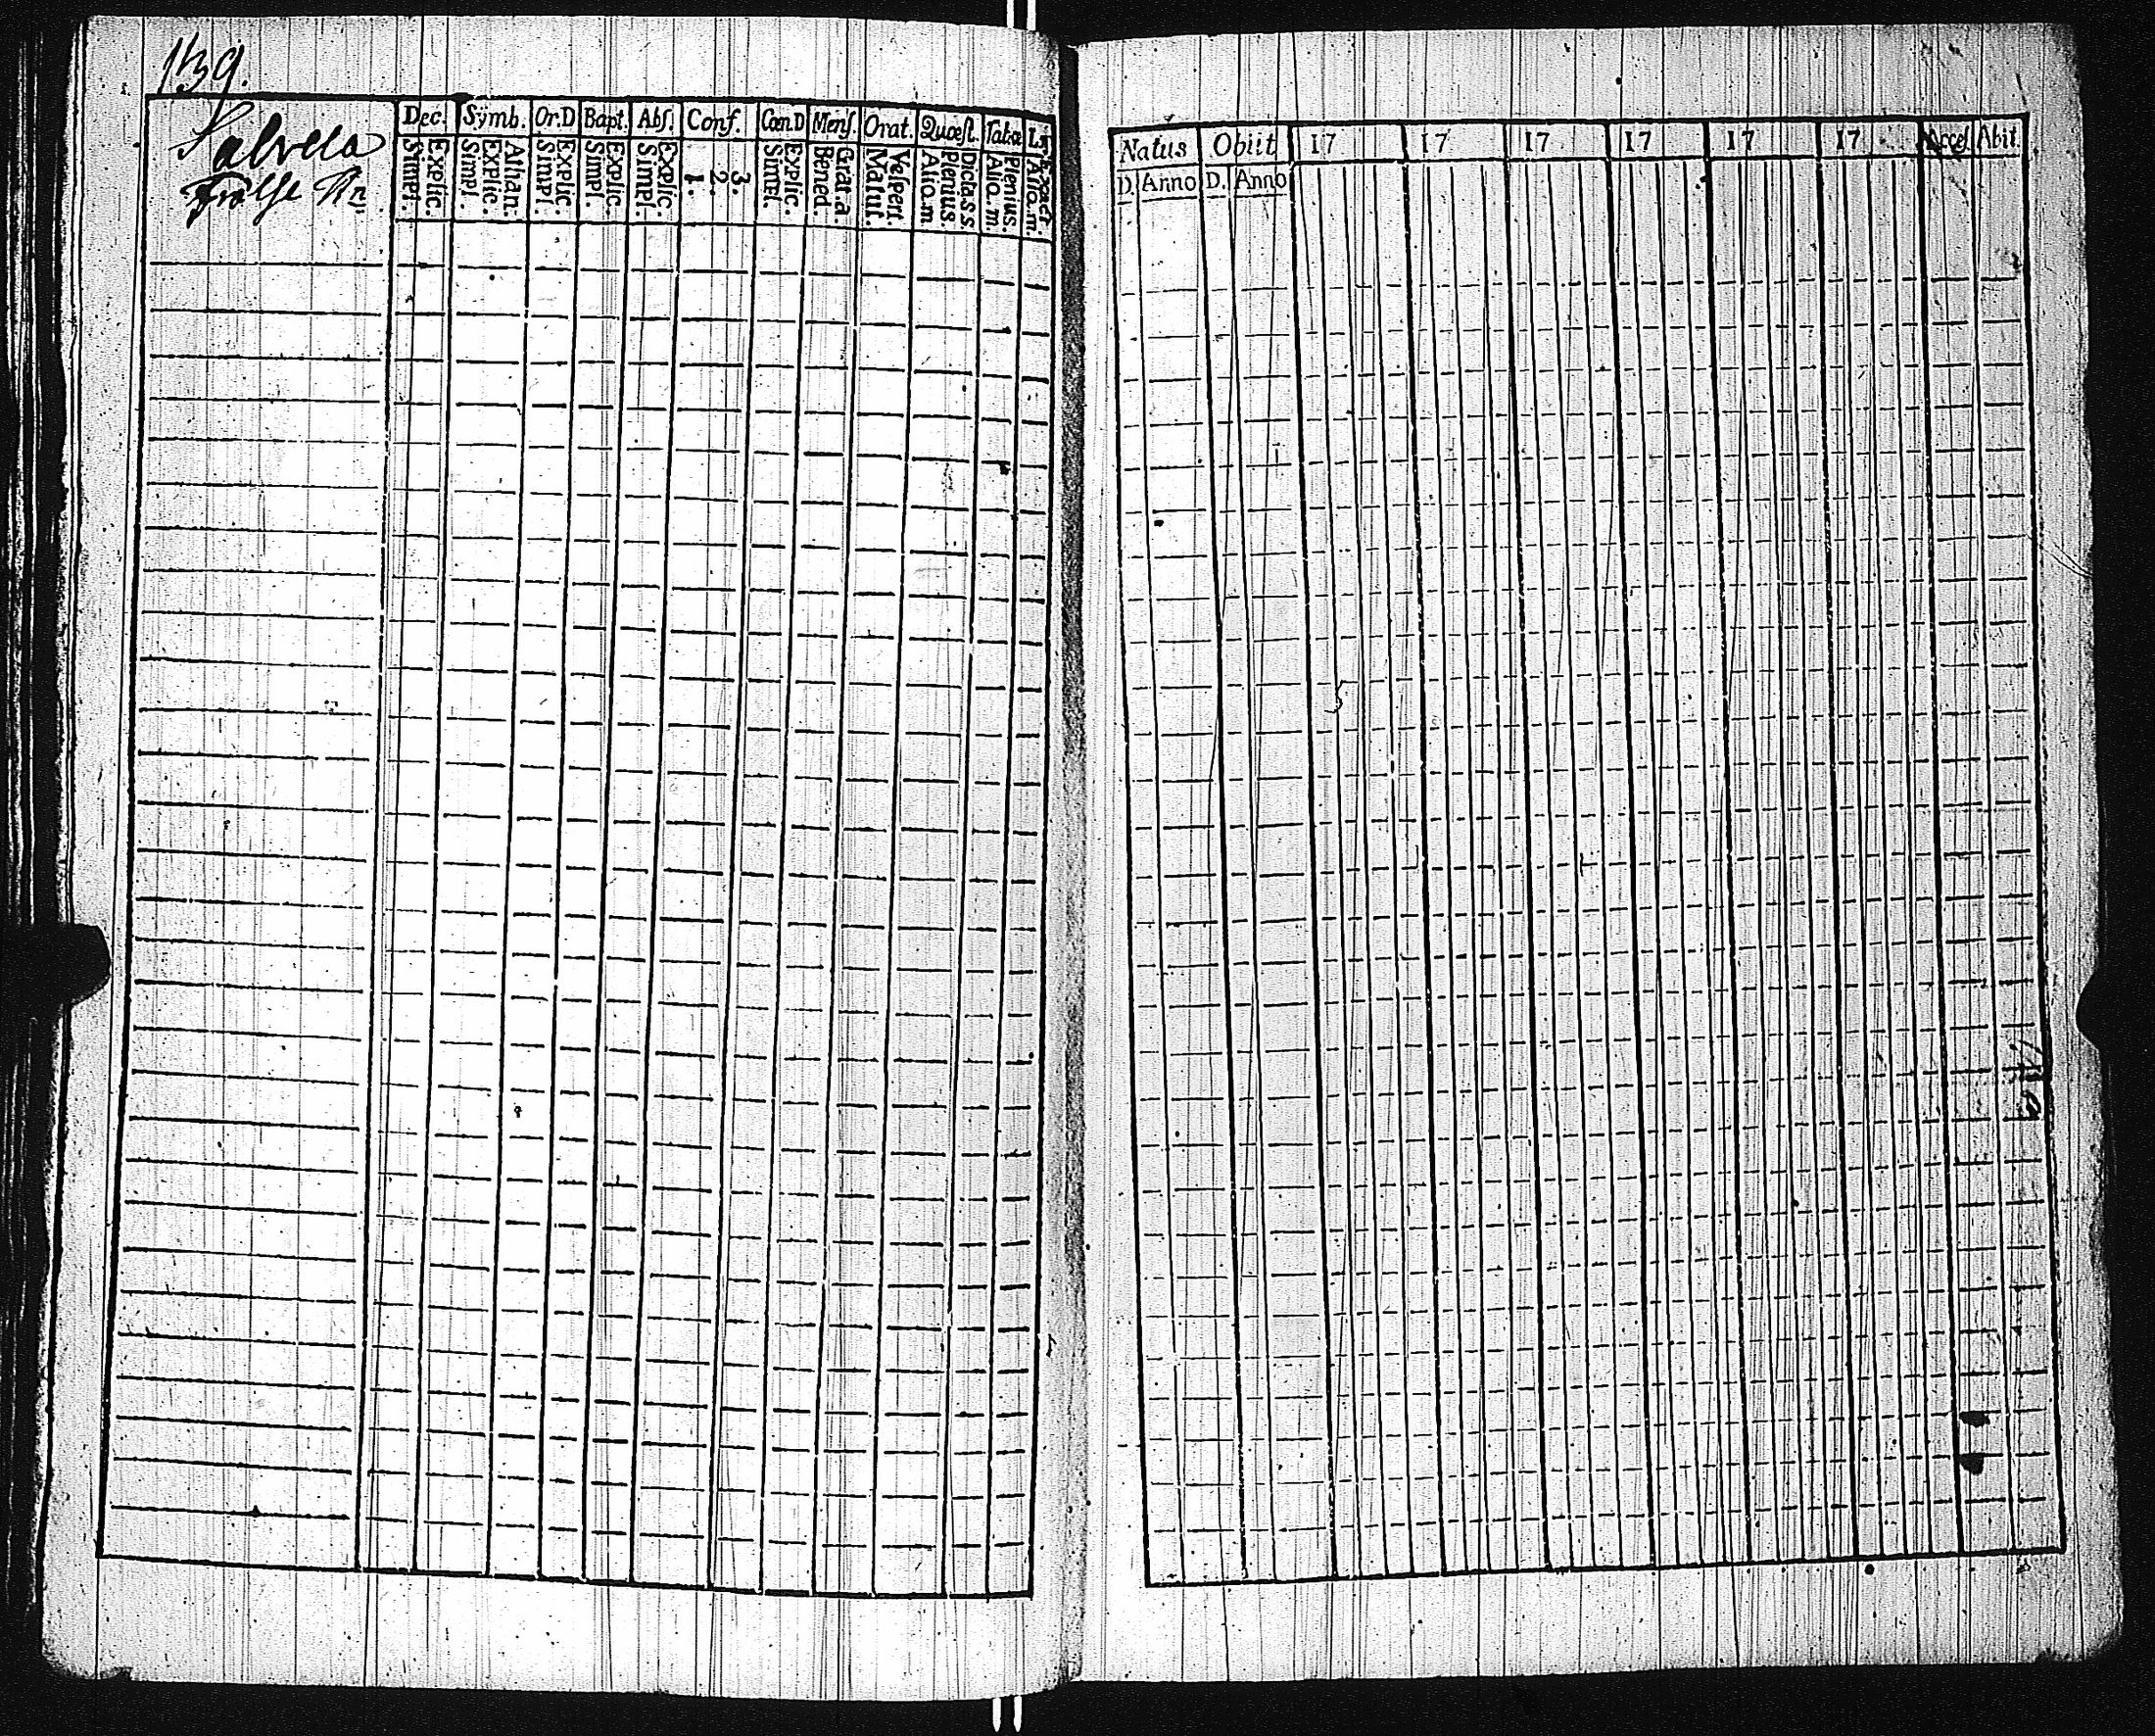 139.
Salvela
Frälse Nr:
Dec. Symb. Or.D Bapt. Abs. Conf. Cœn.D Mens. Orat. Quæst. Tabæ
Simpl. Explic. Simpl. Explic. Athan. Simpl. Explic. Simpl. Explic. Simpl. Explic. 1. 2. 3. Simpl. Explic. Bened. Grat.a Matut. Vespert. Alio.m. Plenius. Dicta.s.s. Alio.m. Plenius. Alio.m. Exact.
Natus Obiit 17 17 17 17 17 17 Acces. Abit.
D. Anno D. Anno